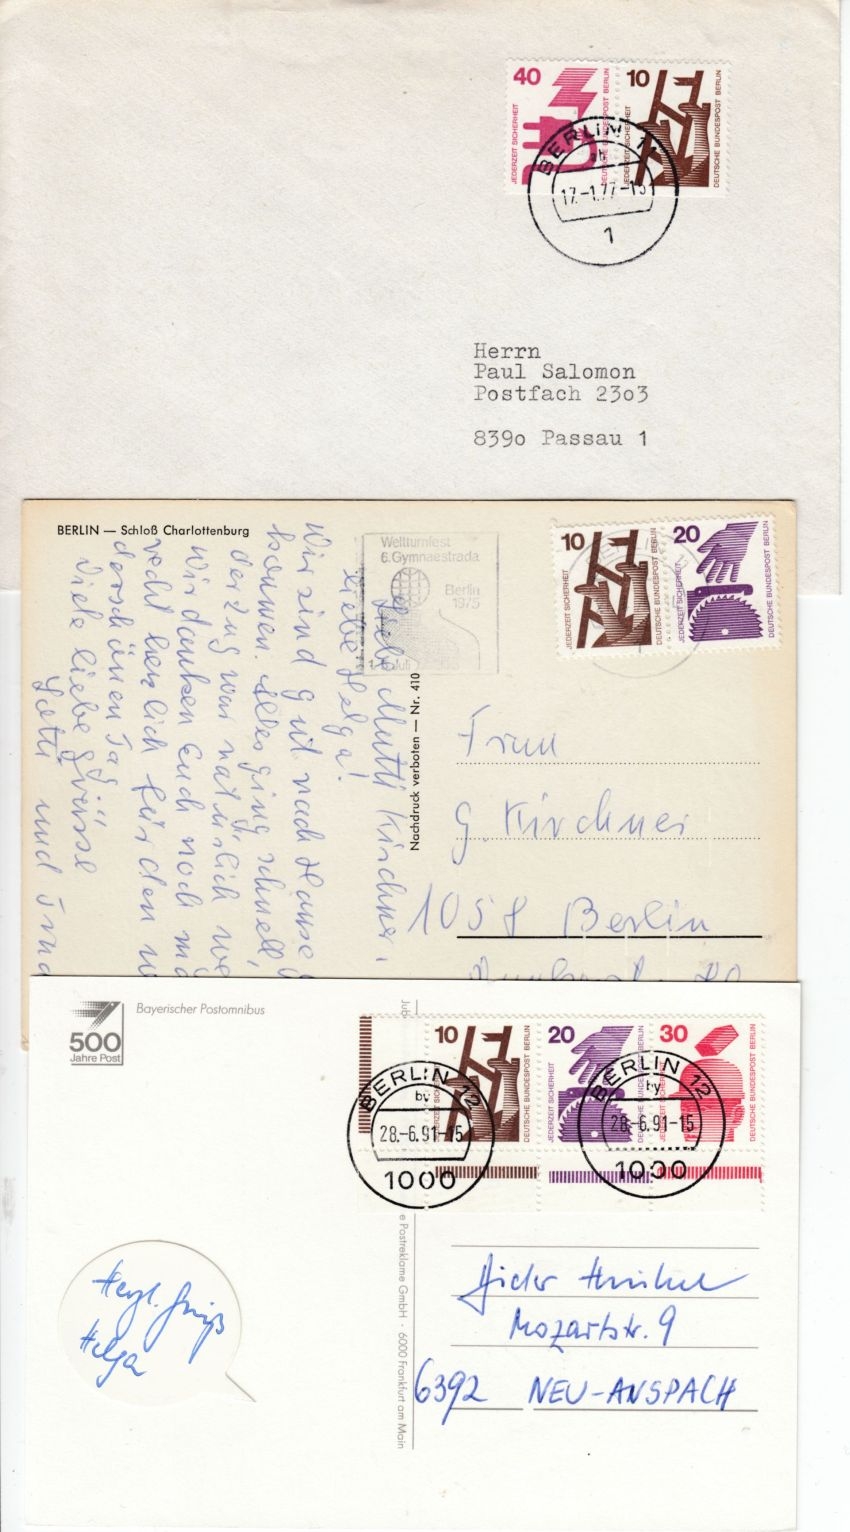 40
10
JEDERZEIT SICHERHEIT
DEUTSCHE BUNDESPOST BERLIN
JEDERZEIT SICHERHEIT
DEUTSCHE BUNDESPOST BERLIN
BERLIN 1
17.-1.77-15
1
Herrn
Paul Salomon
Postfach 2303
8390 Passau 1
BERLIN — Schloß Charlottenburg
Weltturnfest
6. Gymnaestrada
Berlin
1975
1.-5. Juli
10
20
JEDERZEIT SICHERHEIT
DEUTSCHE BUNDESPOST BERLIN
JEDERZEIT SICHERHEIT
DEUTSCHE BUNDESPOST BERLIN
Liebe Mutti Kirchner,
liebe Helga!
Wir sind gut nach Hause
kommen. Alles ging schnell,
der Zug war natürlich
Wir danken Euch noch
recht herzlich für den
schönen Tag
Viele liebe Grüsse
und
Nachdruck verboten — Nr. 410
Frau
G. Kirchner
1058 Berlin
500
Jahre Post
Bayerischer Postomnibus
10
20
30
DEUTSCHE BUNDESPOST BERLIN
JEDERZEIT SICHERHEIT
DEUTSCHE BUNDESPOST BERLIN
DEUTSCHE BUNDESPOST BERLIN
BERLIN 12
by
28.-6.91-15
1000
BERLIN 12
by
28.-6.91-15
1000
e Postreklame GmbH · 6000 Frankfurt am Main
Herzl. Grüß
Helga
Mozartstr. 9
6392 NEU-ANSPACH